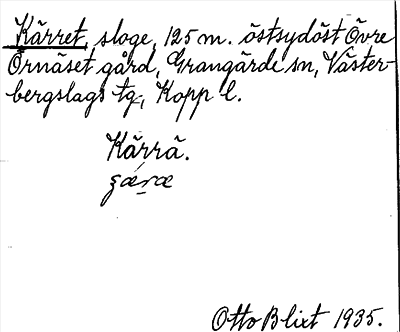 Kärret, sloge, 125 m. östsydöst Övre
Örnäset gård, Grangärde sn, Väster-
bergslags tg., Kopp l.
Kärrä.
Otto Blixt 1935.